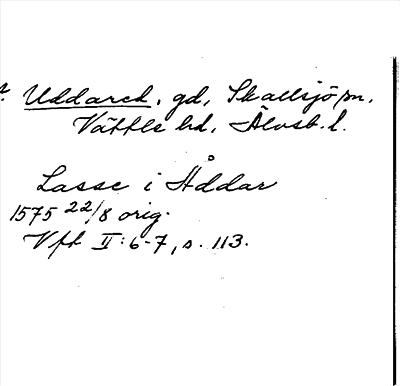 Uddared, gd, Skallsjö sn,
Vättle hd, Älvsb. l.
Lasse i Åddar
1575 22/8 orig.
Vft II:6-7, s. 113.